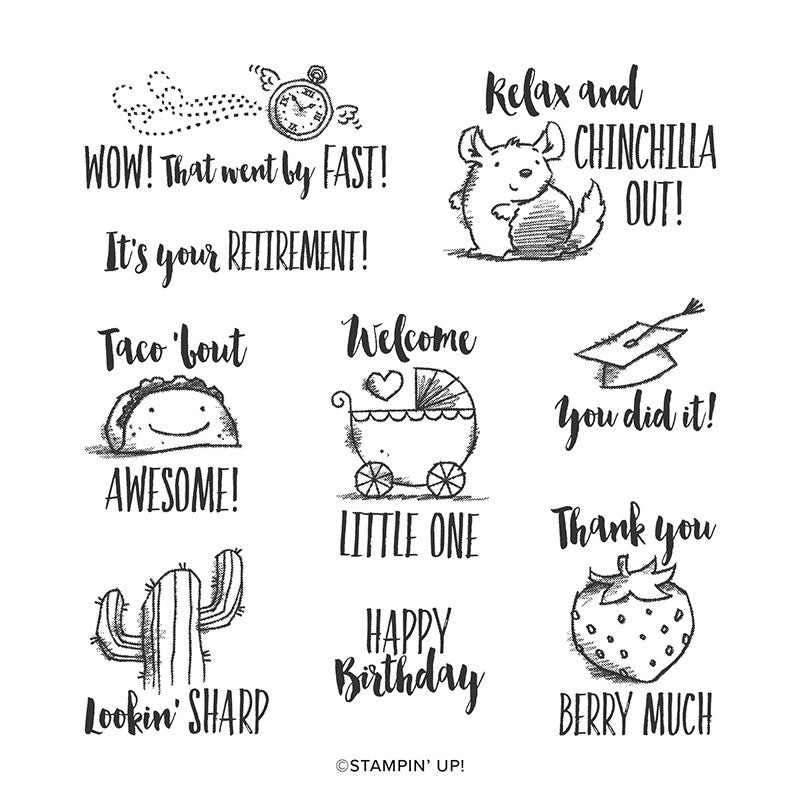 WOW! That went by FAST!
It's your RETIREMENT!
Relax and
CHINCHILLA
OUT!
Taco 'bout
AWESOME!
Welcome
LITTLE ONE
You did it!
Lookin' SHARP
HAPPY
Birthday
Thank you
BERRY MUCH
©STAMPIN' UP!